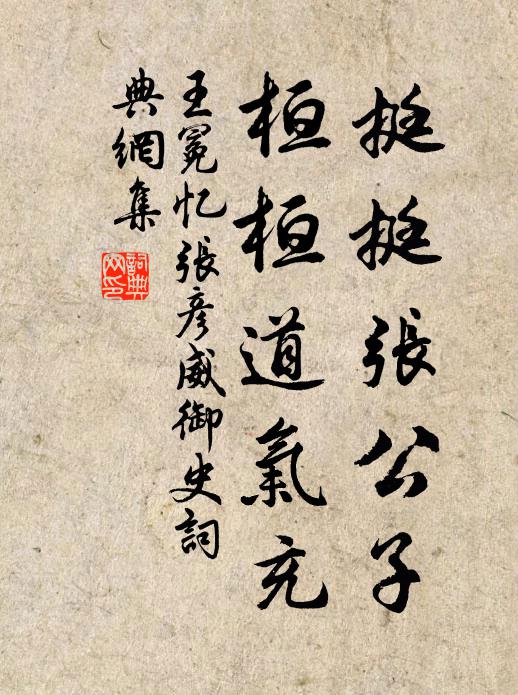 挺挺張公子
桓桓道氣充
王冕忆張彥威御史詞
典網集
詞典网印